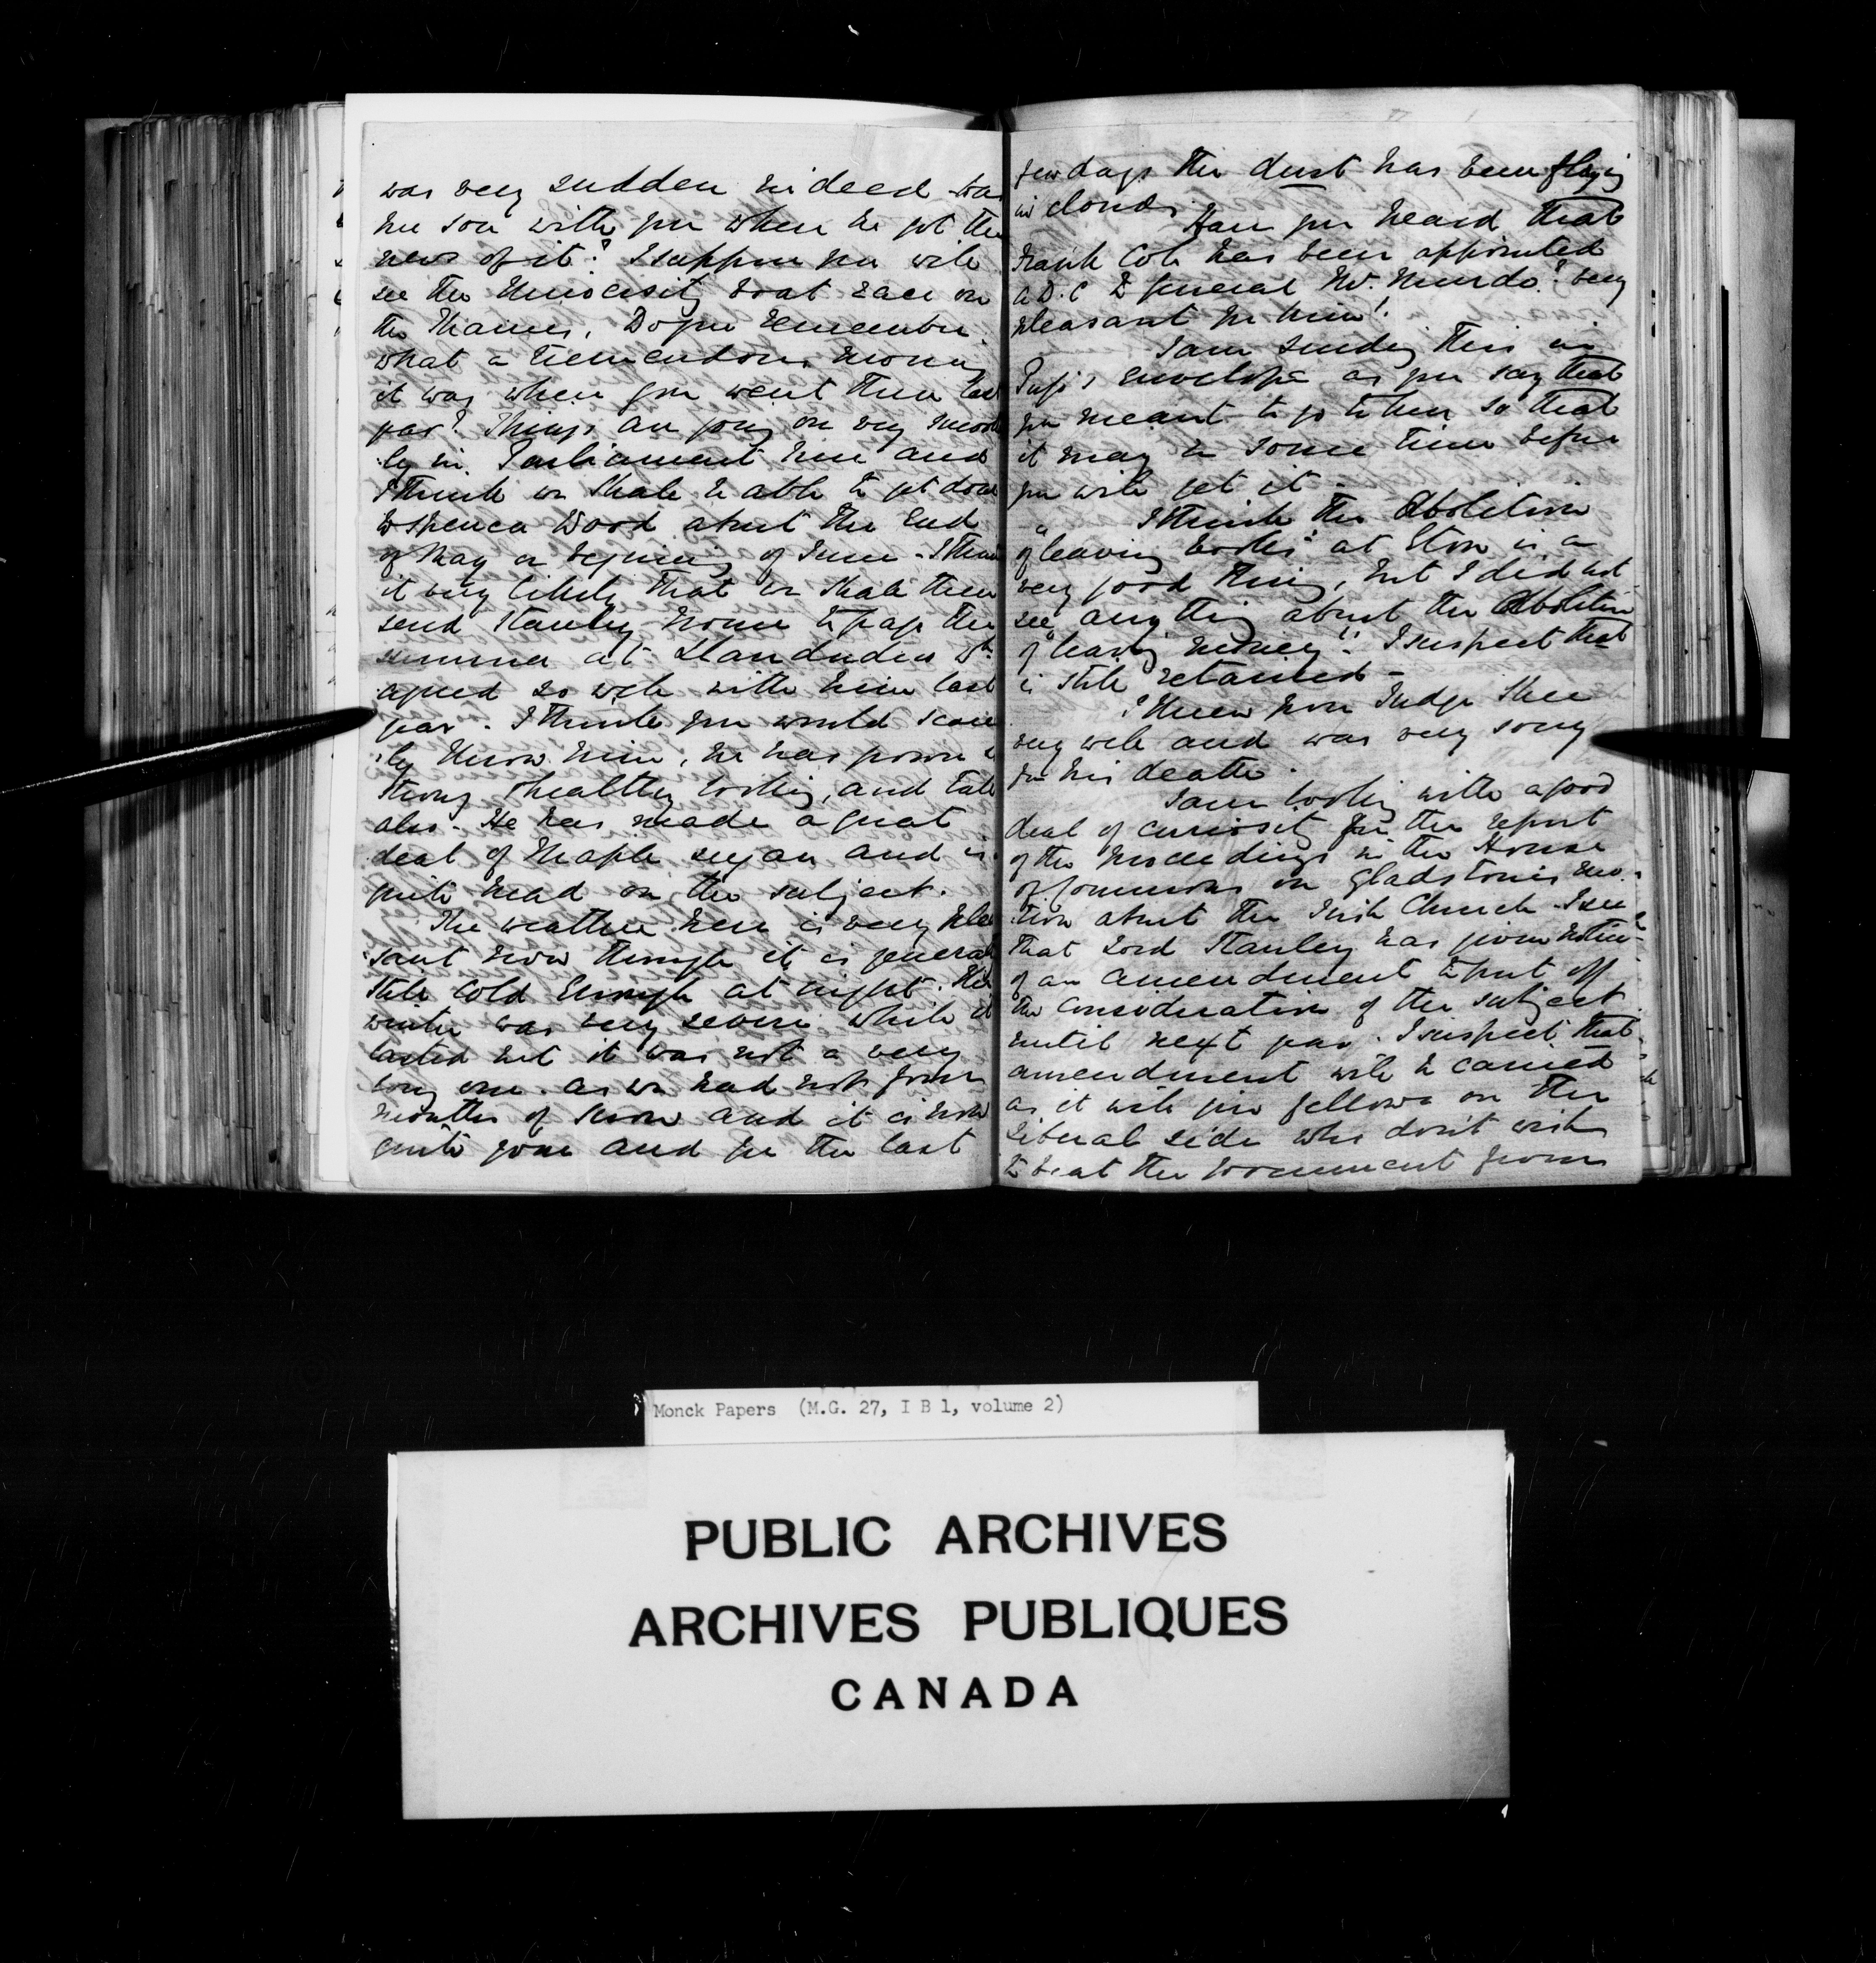 was very sudden indeed was
her son with you when he got the
news of it? I suppose you will
see the University boat race on
the Thames. Do you remember
what a tremendous
it was when you went there last
year? Things are going on very smooth
:ly in Parliament here and
I think we shall be able to get down
to Spencer Wood about the end
of May or begining of June - I think
it very likely that we shall then
send Stanley home to pass the
summer at Llandudno wh.
agreed so well with him last
year. I think you would scarce
:ly know him, he has grown so
strong & healthy looking, and tall
also. He has made a great
deal of Maple sugar and is
quite mad on the subject.
The weather here is very plea
:sant now though it is generally
still cold enough at night. The
winter was very severe while it
lasted but it was not a very
long one. as we had not four
months of snow and it is now
quite gone and for the last
few days the dust has been flying
in clouds.
Have you heard that
Frank Cole has been appointed
A.D.C to General Mc. Murdo? very
pleasant for him!
I am sending this in
envelope as you say that
you meant to go to her so that
it may be some time before
you will get it -
I think the Abolition
of "leaving books" at Eton is a
very good thing, but I did not
see any thing about the Abolition
of "leaving money". I suspect that
is still retained -
I knew poor Judge Shee
very well and was very sorry
for his death.
I am looking with a good
deal of curiosity for the report
of the proceedings in the House
of Commons on Gladstone's mo:
:tion about the Irish Church. I see
that Lord Stanley has given notice
of an amendment to put off
the consideration of the subject
until next year. I suspect that
amendment will be carried
as it will give fellows on the
Liberal side who don't wish
to beat the Government from
Monck Papers (M.G. 27, I B 1, volume 2)
PUBLIC ARCHIVES
ARCHIVES PUBLIQUES
CANADA